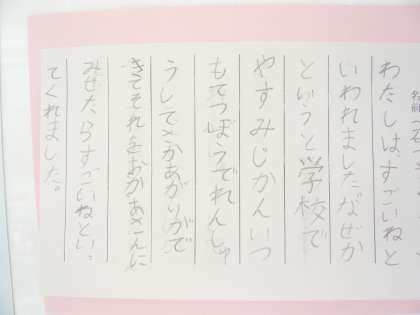 わたしは、すごいねと
いわれました。なぜか
というと学校で
やすみじかんいつ
もてつぼうでれんしゅ
うしてさかあがりがで
きてそれをおかあさんに
みせたらすごいねといっ
てくれました。